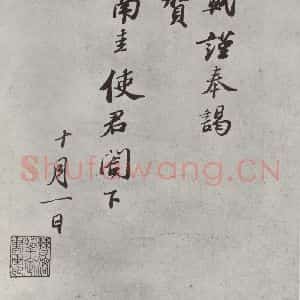 軾謹奉謁
賀
南圭使君閤下
十月一日
Shufawang.CN